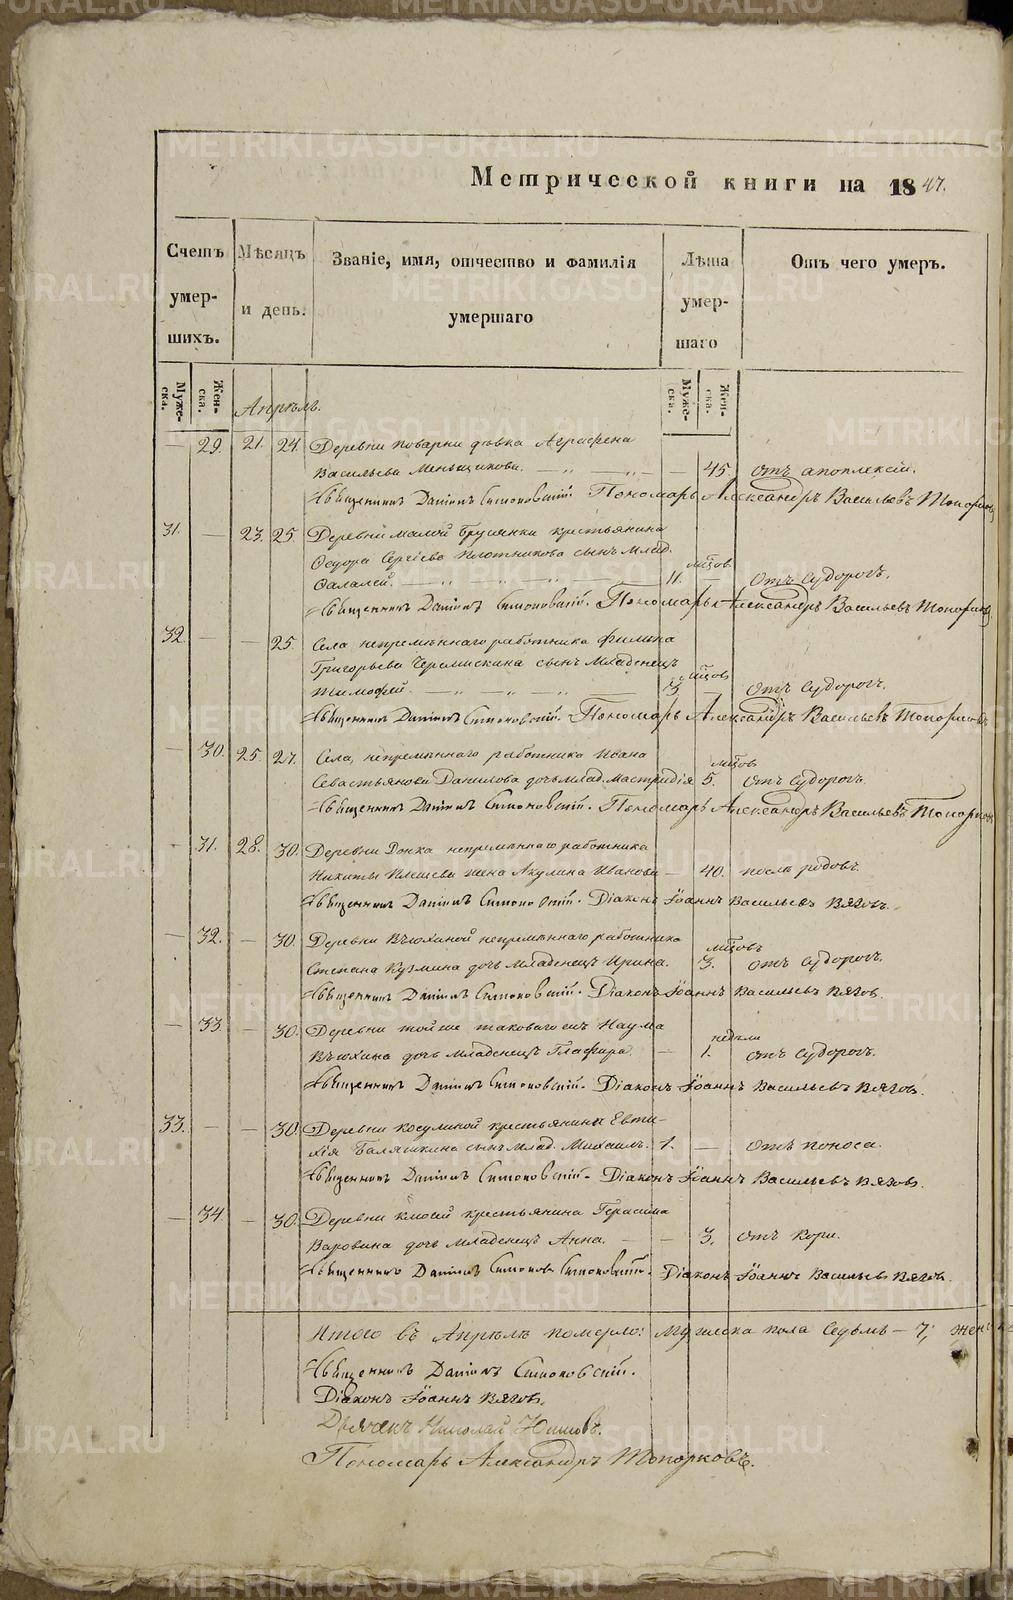 Метрической книги на 1847.
Счетъ умер-шихъ.
Мѣсяцъ и день.
Званіе, имя, отчество и фамилія умершаго
Лѣта умер-шаго
Отъ чего умеръ.
Муже-ска.
Жен-ска.
Муже-ска.
Жен-ска.
Апрѣль.
— 29. 21. 24. Деревни Поварни дѣвка Агрофена
Васильева Меньщикова. — — 45. отъ апоплексіи.
Священникъ Даніилъ Пономарь Александръ Васильевъ Топорковъ
31. — 23. 25. Деревни малой Брусянки крестьянина
Ѳедора Сергѣева Плотникова сынъ млад.
Фалалей. 11. мѣсцов — Отъ судорогъ.
Священникъ Даніилъ Пономарь Александръ Васильевъ Топорковъ
32. — — 25. Села непремѣннаго работника Филипа
Григорьева Черемискина сынъ младенецъ
Тимофей. 3 — отъ судорог.
Священникъ Даніилъ Пономарь Александръ Васильевъ Топорковъ
— 30. 25. 27. Села, непремѣннаго работника Ивана
Севастьянова Данилова дочь млад. Мастридія 5. мѣсцов отъ судорогъ.
Священникъ Даніилъ Пономарь Александръ Васильевъ Топорковъ
— 31. 28. 30. Деревни непремѣннаго работника
Никиты жена Акулина Иванова — 40. послѣ родовъ.
Священникъ Даніилъ Діаконъ Іоаннъ Васильевъ
— 32. — 30. Деревни Вьюхиной непремѣннаго работника
Степана Кузмина дочь младенецъ Ирина. 3. мѣсцовъ отъ судорогъ.
Священникъ Даніилъ Діаконъ Іоаннъ Васильевъ
— 33 — 30. Деревни той же таковаго жъ Наума
Вьюхина дочь младенецъ Глафира. — 1. недѣли отъ судорогъ.
Священникъ Даніилъ Діаконъ Іоаннъ Васильевъ
33. — — 30 Деревни косулиной крестьянина Евти-
хія Балашкина сынъ млад. Михаилъ. 1. — отъ поноса.
Священникъ Даніилъ Діаконъ Іоаннъ Васильевъ
— 34 — 30. Деревни крестьянина Герасима
Варовина дочь младенецъ Анна. — — 3. отъ кори.
Священникъ Даніилъ Діаконъ Іоаннъ Васильевъ
Итого въ Апрѣлѣ померло: мужеска пола седмь — 7; жен
Священникъ Даніилъ
Діаконъ Іоаннъ
Дьячекъ Николай
Пономарь Александръ Топорковъ.
METRIKI.GASO-URAL.RU